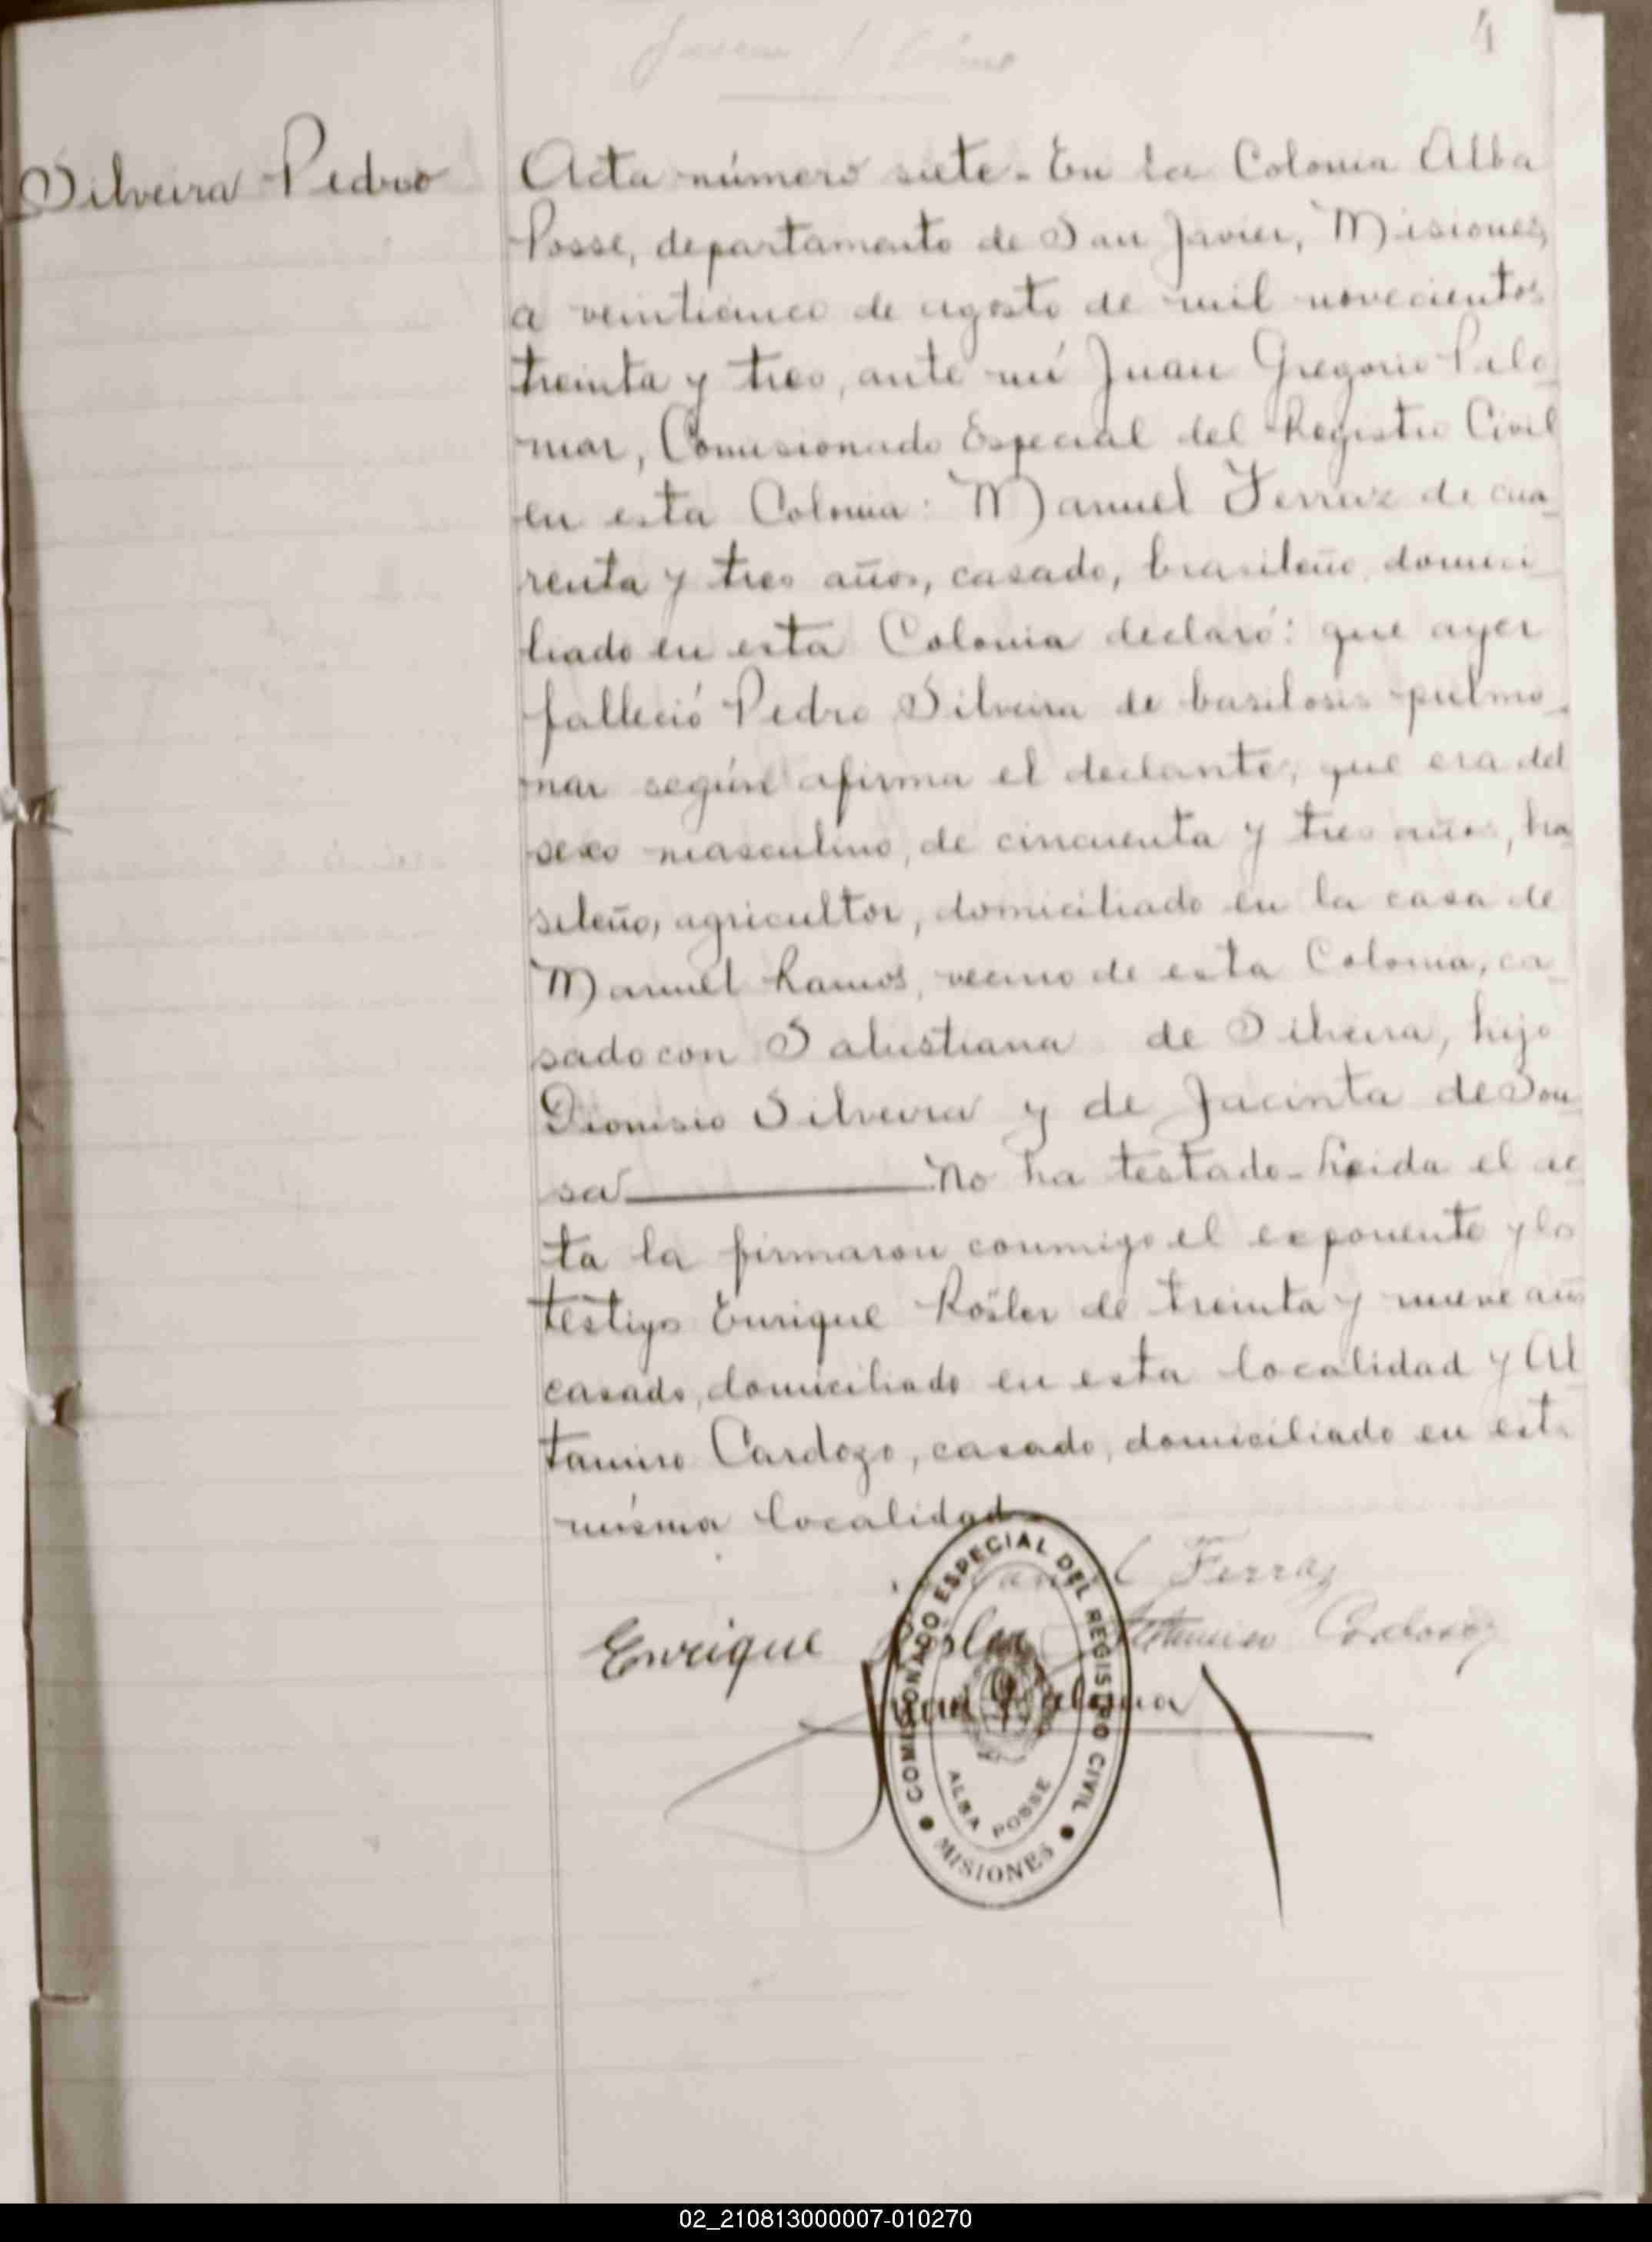 4
Silveira Pedro
Acta número siete. En la Colonia Alba
Posse, departamento de San Javier, Misiones,
a veinticinco de agosto de mil novecientos
treinta y tres, ante mí Juan Gregorio Palo
mar, Comisionado Especial del Registro Civil
en esta Colonia: Manuel Ferraz de cua
renta y tres años, casado, brasileño, domici
liado en esta Colonia declaró: que ayer
falleció Pedro Silveira de basilosis pulmo
nar según afirma el declante, que era del
sexo masculino, de cincuenta y tres años, bra
sileño, agricultor, domiciliado en la casa de
Manuel Ramos, vecino de esta Colonia, ca
sado con Salustiana de Silveira, hijo
Dionisio Silveira y de Jacinta de Sou
sa No ha testado. Leida el ac
ta la firmaron conmigo el exponente y los
testigos Enrique Rösler de treinta y nueve años
casado, domiciliado en esta localidad y Al
tamiro Cardozo, casado, domiciliado en esta
misma localidad
Ferraz
Enrique Rösler
COMISIONADO ESPECIAL DEL REGISTRO CIVIL
ALBA POSSE
MISIONES
02_210813000007-010270